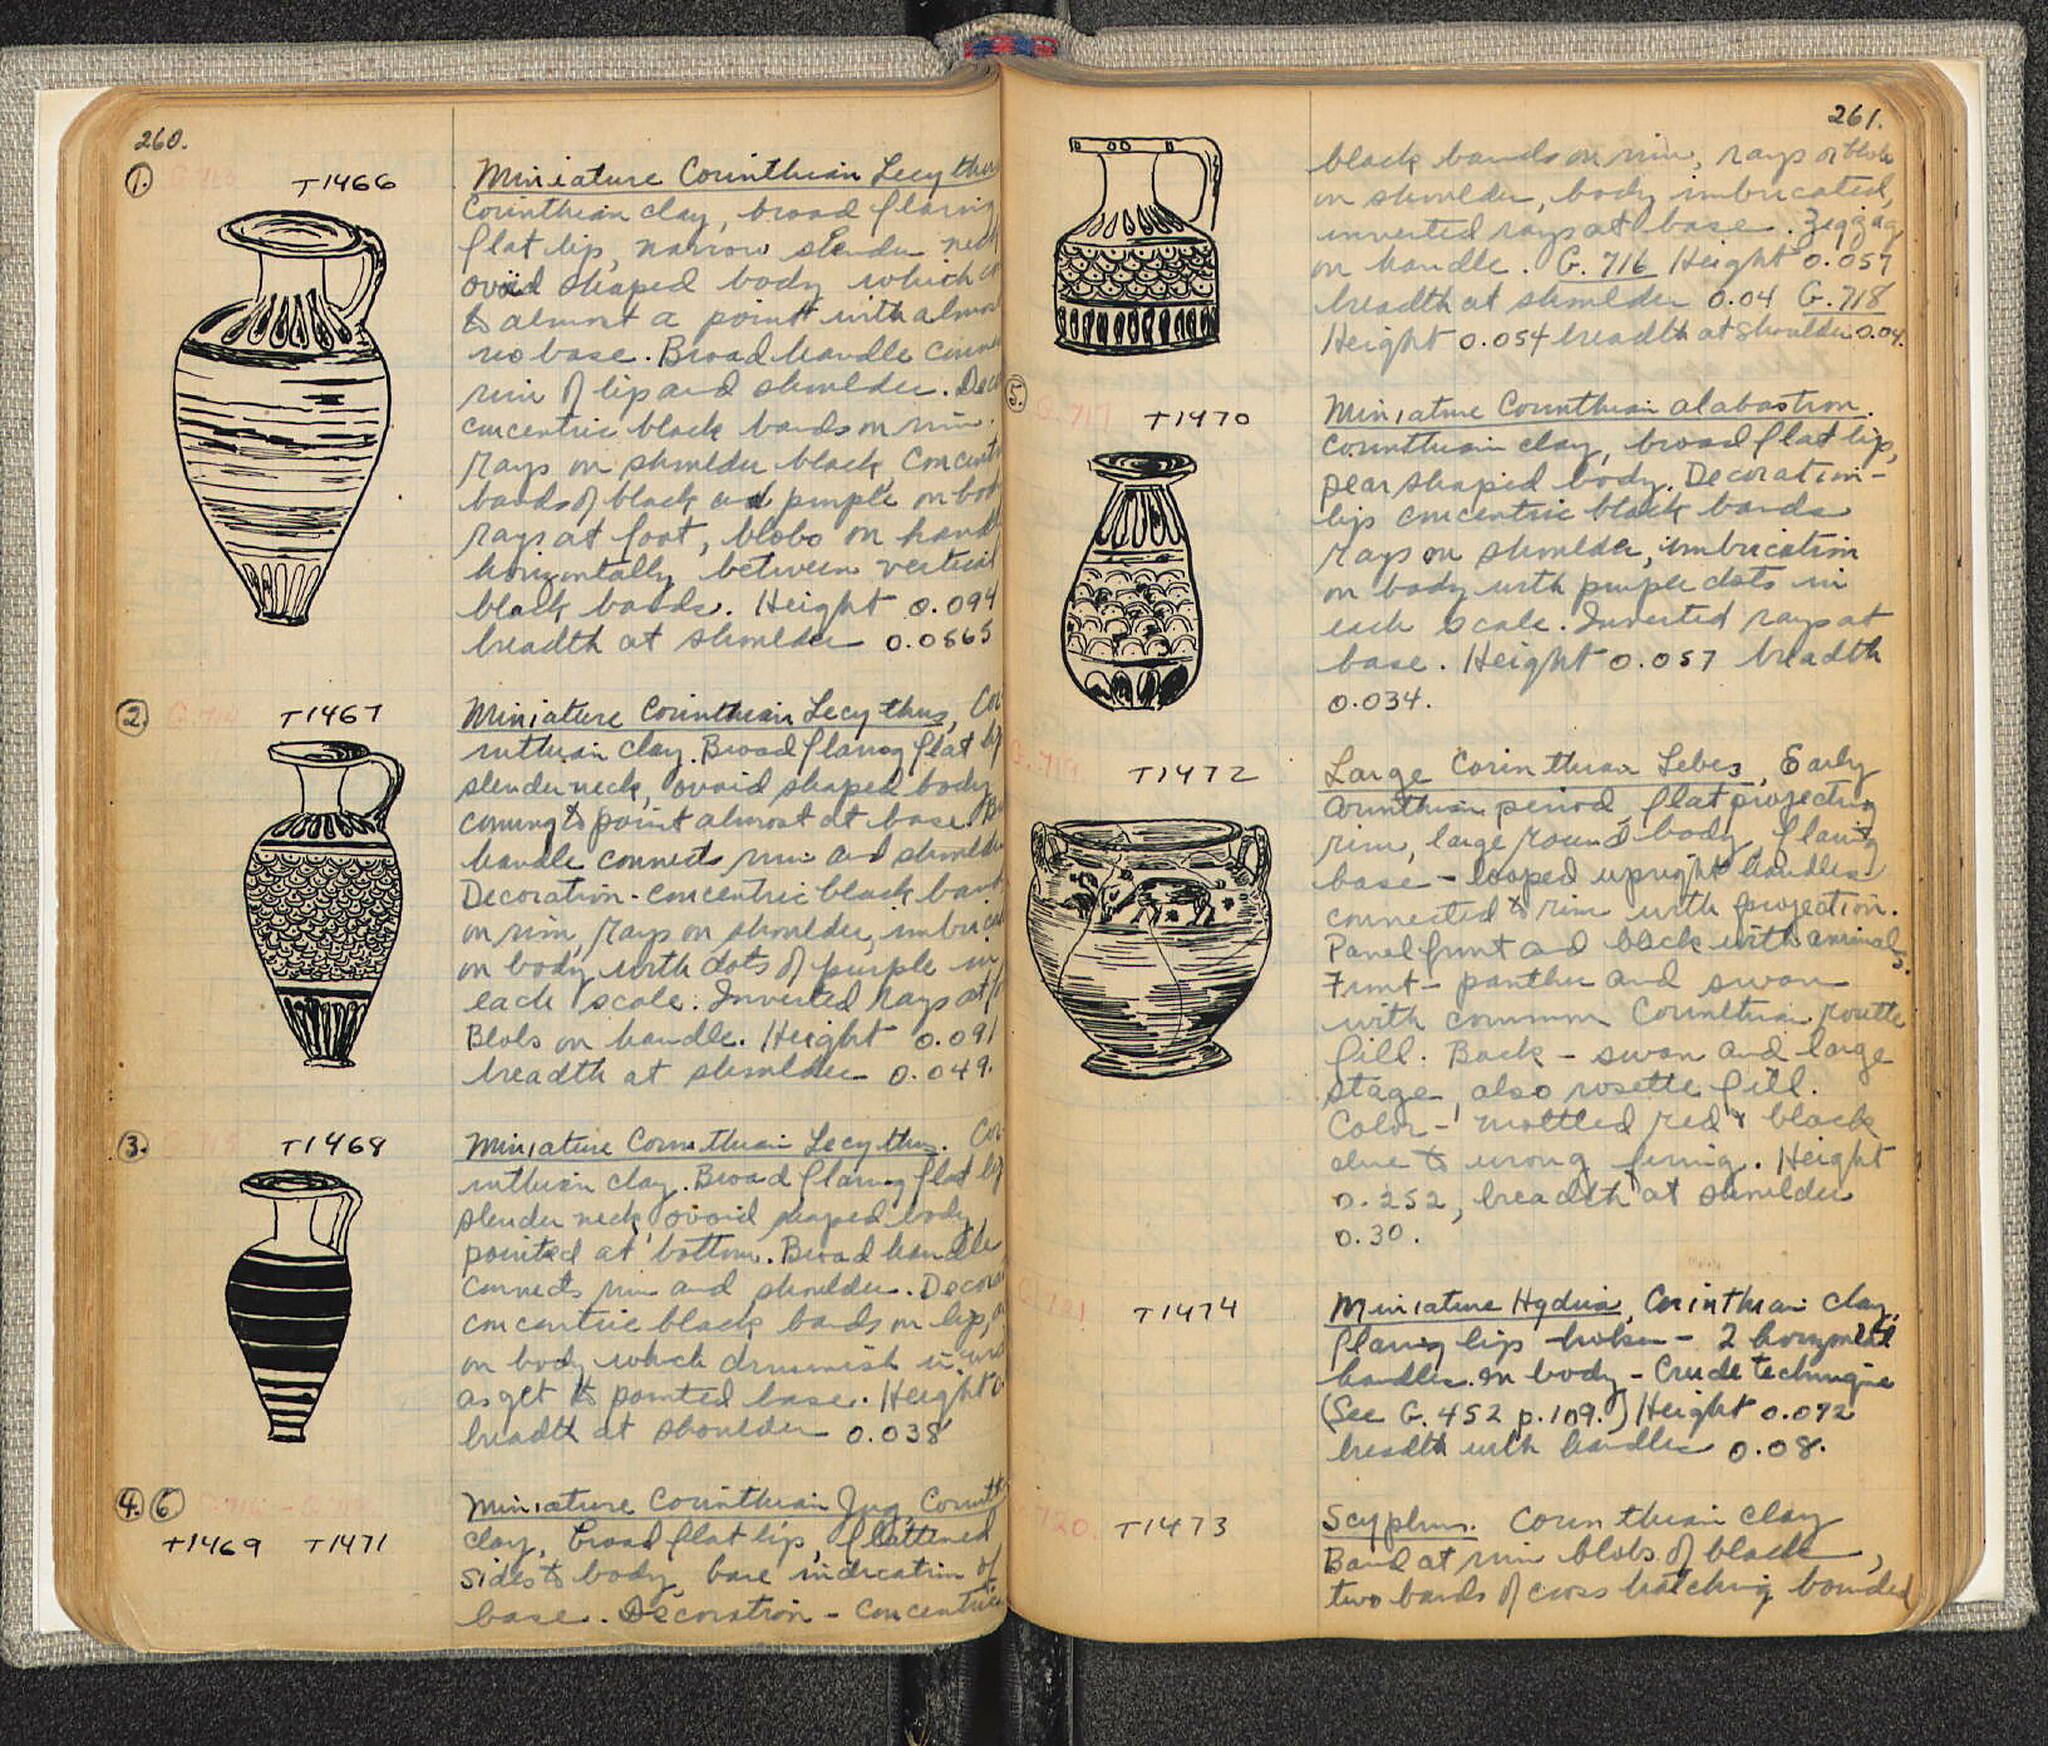 260.
1.
T1466
Miniature Corinthian Lecythus
Corinthian clay, broad flaring
flat lip, narrow slender neck
ovoid shaped body which
to almost a point with almost
no base. Broad handle
rim of lip and shoulder.
concentric black bands on rim.
rays on shoulder black
bands of black and purple on
rays at foot, blobs on
horizontally between vertical
black bands. Height 0.094
breadth at shoulder 0.0565
2.
G. 714
T1467
Miniature Corinthian Lecythus, Cor
inthian clay. Broad flaring flat lip
slender neck, ovoid shaped body
coming to point almost at base.
handle connects rim and shoulder
Decoration - concentric black
on rim, rays on shoulder,
on body with dots of purple in
each scale. Inverted rays at
Blobs on handle. Height 0.091
breadth at shoulder 0.049.
3.
T1468
Miniature Corinthian Lecythus. Cor
inthian clay. Broad flaring flat lip
slender neck, ovoid shaped body,
pointed at bottom. Broad handle
connects rim and shoulder.
concentric black bands on lip,
on body which diminish in
as get to pointed base. Height
breadth at shoulder 0.038
4. 6
T1469 T1471
Miniature Corinthian Jug,
clay, broad flat lip, flattened
sides to body, bare indication of
base. Decoration - concentric
261.
black bands on rim, rays or blobs
on shoulder, body imbricated,
inverted rays at base. Zigzag
on handle. G. 716 Height 0.057
breadth at shoulder 0.04 G. 718
Height 0.054 breadth at shoulder 0.04.
5.
G. 717
T1470
Miniature Corinthian alabastron.
Corinthian clay, broad flat lip,
pear shaped body. Decoration -
lip concentric black bands
rays on shoulder, imbrication
on body with purple dots in
each scale. Inverted rays at
base. Height 0.057 breadth
0.034.
G. 719
T1472
Large Corinthian Lebes, Early
Corinthian period, flat projecting
rim, large round body, flaring
base - looped upright handles
connected to rim with projection.
Panel front and back with animals.
Front - panther and swan
with common Corinthian rosette
fill. Back - swan and large
stage, also rosette fill.
Color - mottled red & black
due to wrong firing. Height
0.252, breadth at shoulder
0.30.
T1474
Miniature Hydria, Corinthian clay,
flaring lip broken - 2 horizontal
handles on body - Crude technique
(See G. 452 p. 109.) Height 0.072
breadth with handles 0.08.
720.
T1473
Scyphus. Corinthian clay
Band at rim blobs of black,
two bands of cross hatching bounded